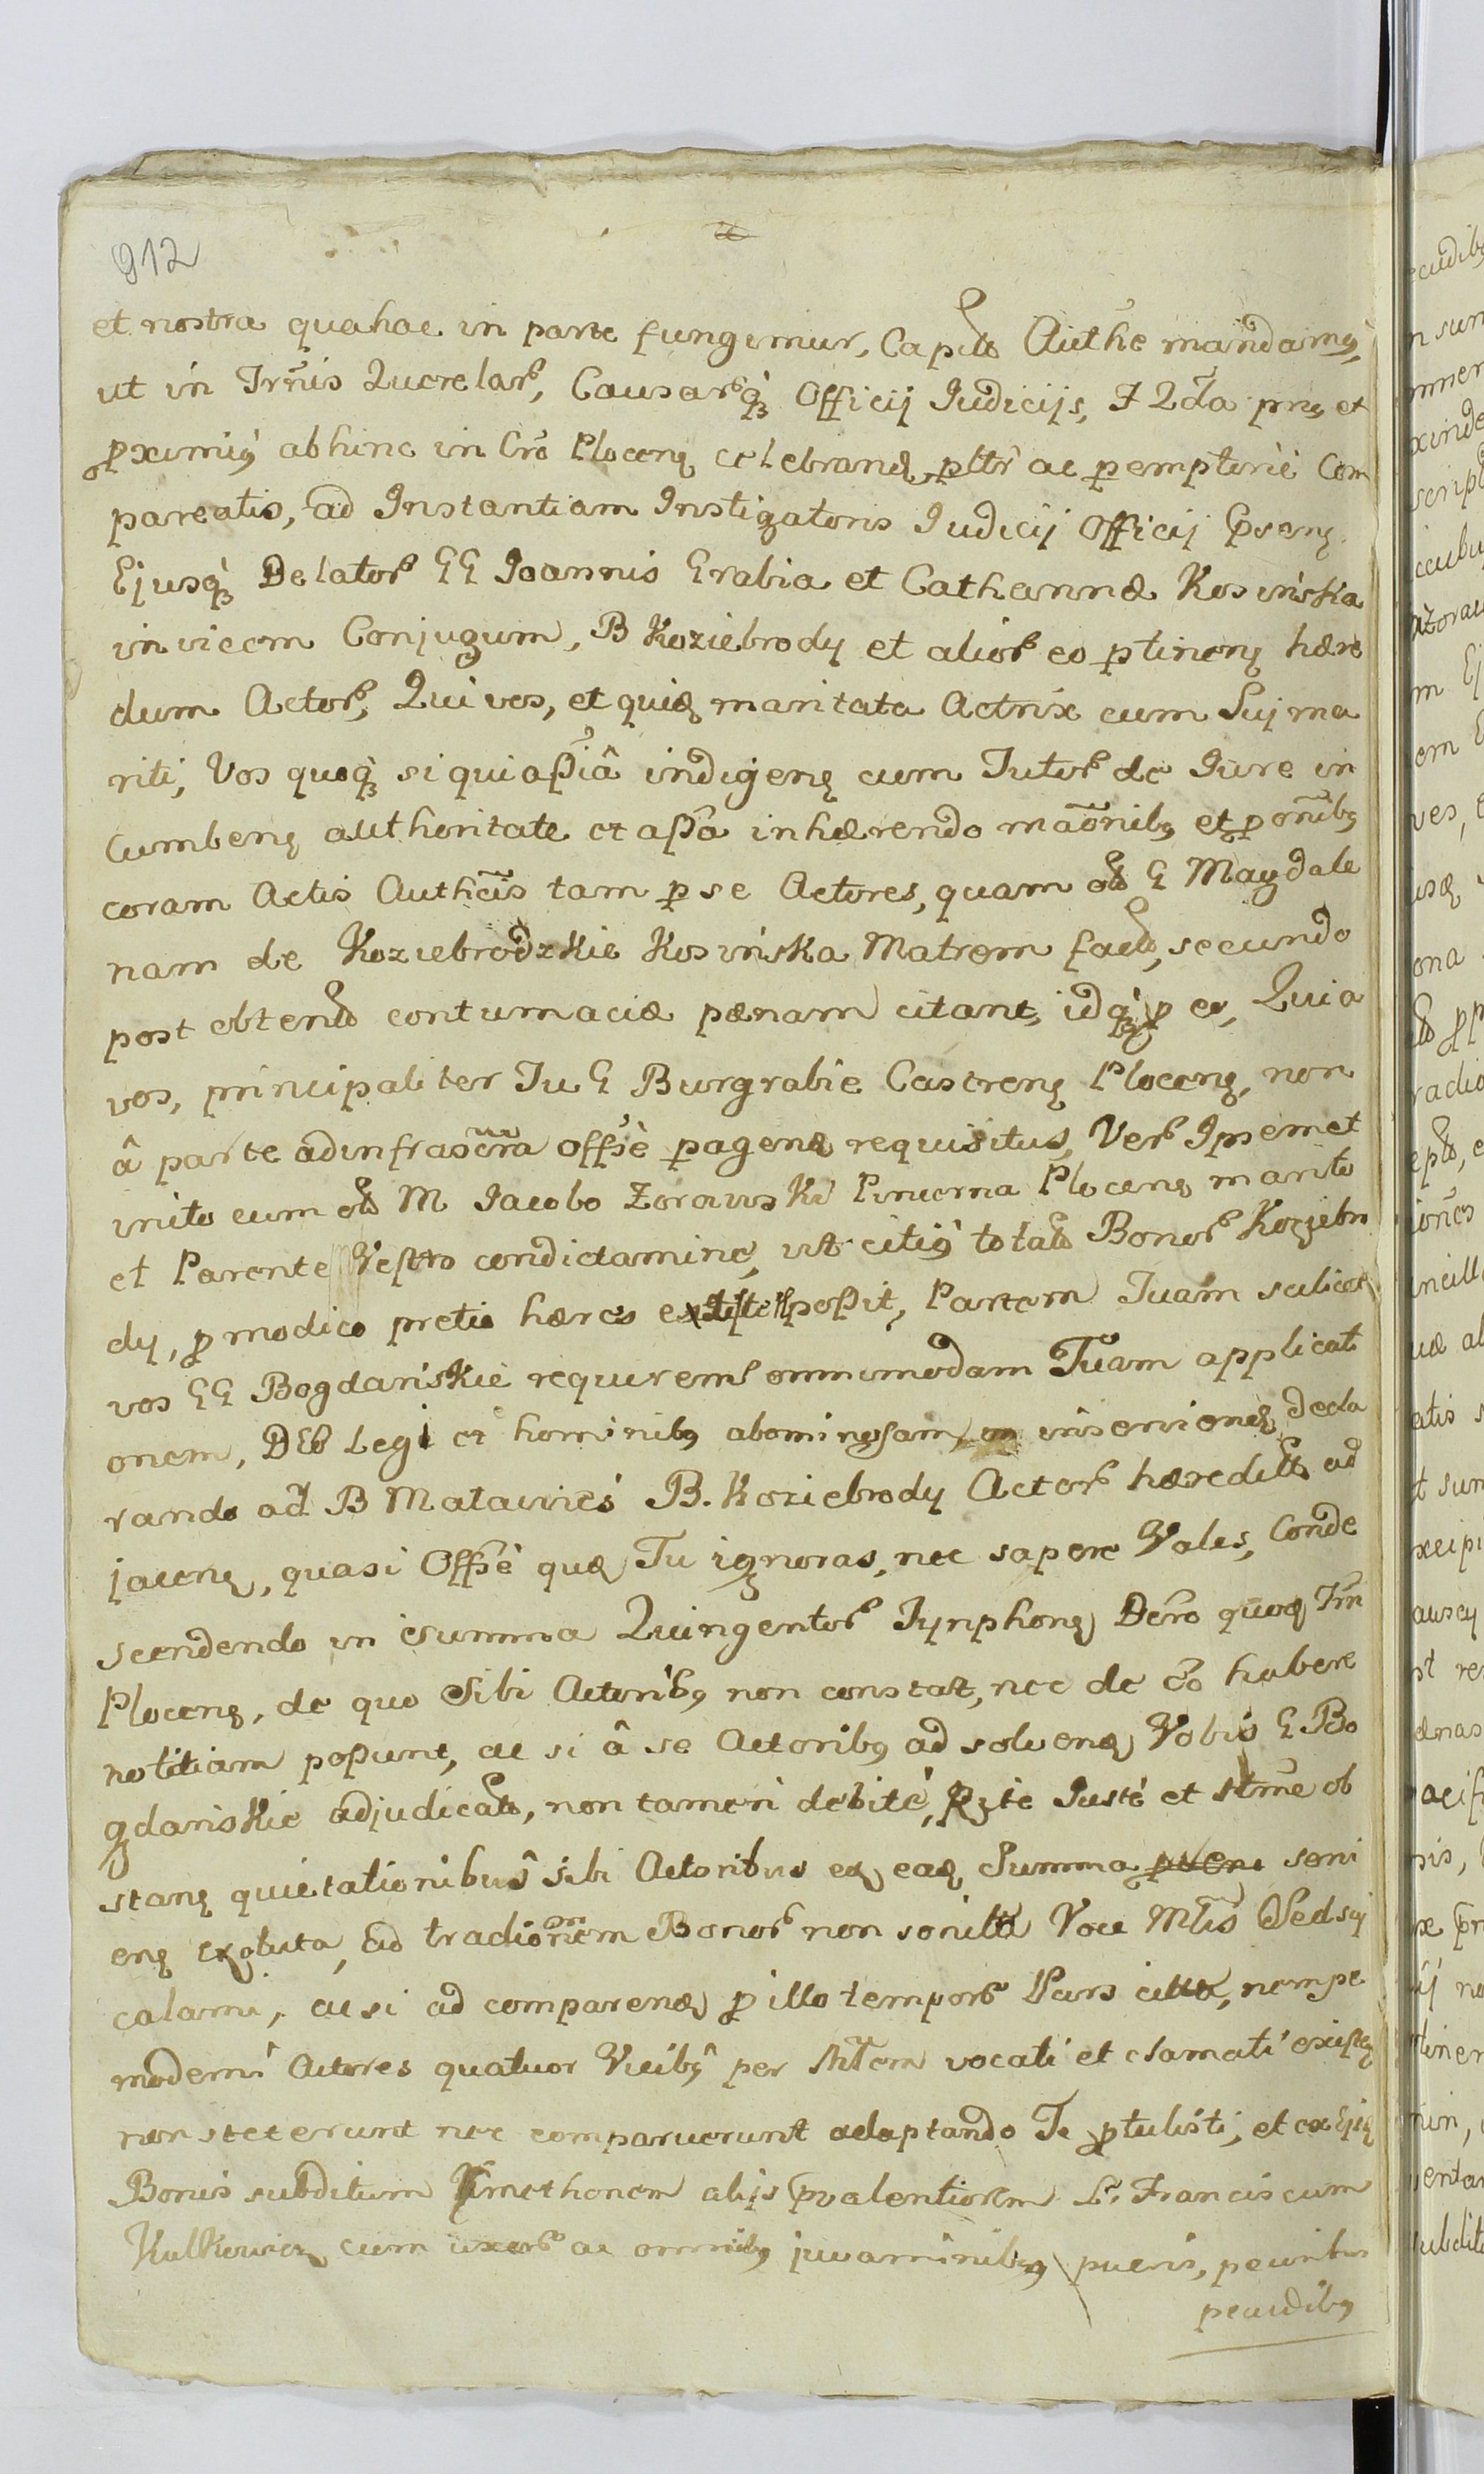 912
et nostra qua hac in parte fungimur, Capitli Authe mandamq,
ut in Trnis Querelar, Causarq Officij Judicijs, F Qda pns et
pximiq abhinc in Cro Plocen celebran, pltr ac pempterie Com
pareatis, ad Instantiam Instigatoris Judicij Officij Psenq
Ejusq Delator GG Joannis Grabia et Catharinæ Kosińska
invicem Conjugum, B Koziebrody et alior eo ptinenq hære
dum Actor, Qui vos, et quiq maritata Actrix cum Suj ma
riti, Vos quoq si qui assiâ indigenq cum Tutor de Jure in
cumbenq authoritate et assâ inhærendo maonibq et ponibq
coram Actis Authcis tam p se Actores, quam G Magdale
nam de Koziebrodzkie Kosińska Matrem factt, secundo
post obtentt contumaciæ pænam citant, idq p eo, Quia
vos, principaliter Tu G Burgrabie Castrenq Plocenq, non
â parte ad infrascra offsè pagenq requisitus, Ver Ipsemet
inito cum M Jacobo Zorawski Pincerna Plocenq marito
et Parente Vestro condictamine, ut citiq totatt Bonor Koziebro
dy, p modico pretio hæres possit, Partem Tuam scilicet
vos GG Bogdańskie requirent omnimodam Tuam applicati
onem, DEO Legi et hominibq abominosam, inservienq decla
rando ad B Matawieś B. Koziebrody Actor hæreditt ad
jacenq, quasi Offsè quq Tu ignoras, nec sapere Vales, Conde
scendendo in Summa Quingentor Tynphonq Dcro quoq Trn
Plocenq, de quo Sibi Actoribq non constat, nec de eo habere
notitiam possunt, ac si â se Actoribq ad solvenq Vobis G Bo
gdańskie adjudicatt, non tamen debitè, Rzte Justè et ob
stanq quietationibus sibi Actoribus eq eaq Summa soni
enq exoluta, ad tradionem Bonor non Voce Mtis Sed suj
calami, ac si ad comparenq p illo tempor Pars citta, nempe
moderni Actores quatuor Vicibq per Mtlem vocati et clamati existen
non steterunt nec comparuerunt adaptando Te ptulisti, et ex Ejsq
Bonis subditum Kmethonem alijs pvalentiorem L. Franciscum
Kulkowicz cum uxor ac omnibq juvaminibq pueris, pecuribus
pecudibq